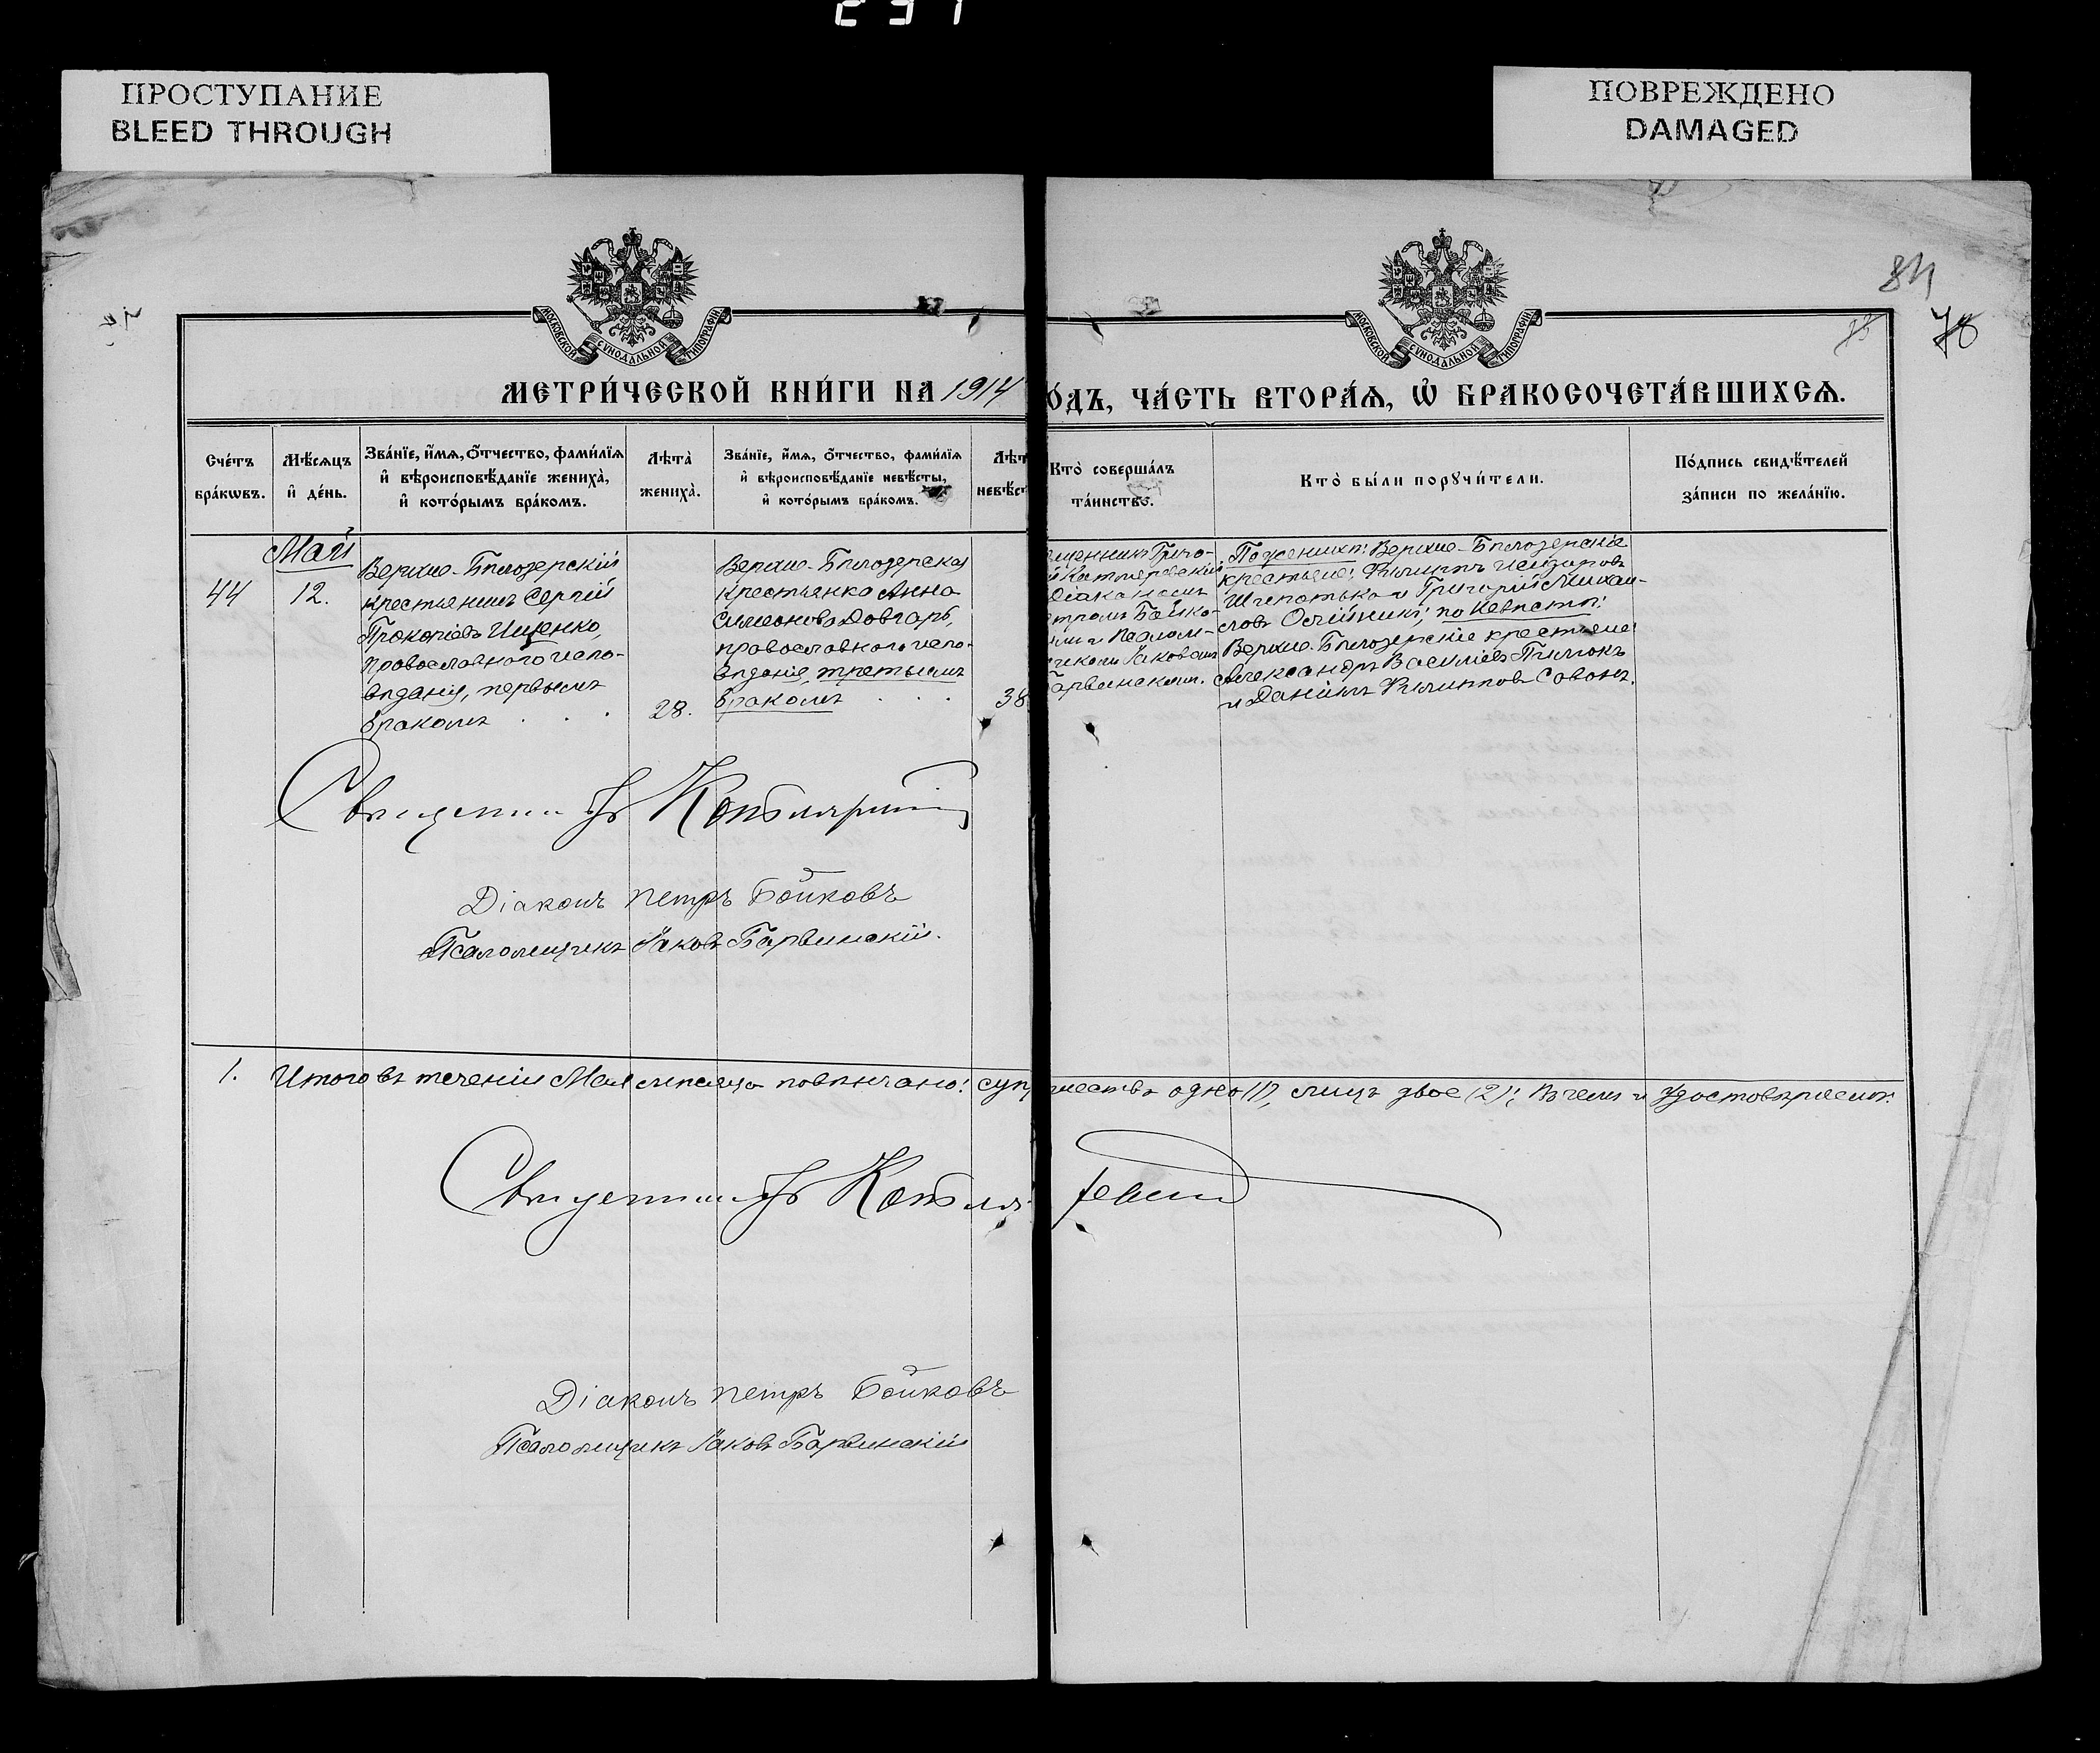 231
ПРОСТУПАНИЕ
BLEED THROUGH
ПОВРЕЖДЕНО
DAMAGED
МОСКОВСКОЙ СѴНОДАЛЬНОЙ ТИПОГРАФІИ
МОСКОВСКОЙ СѴНОДАЛЬНОЙ ТИПОГРАФІИ
84
78
МЕТРИ́ЧЕСКОЙ КНИ́ГИ НА 1914
ОДЪ, ЧА́СТЬ ВТОРА́Ѧ, Ѡ҆ БРАКОСОЧЕТА́ВШИХСѦ.
Сче́тъ
бра́кωвъ.
Мѣ́сѧцъ
и҆ де́нь.
Зва́нїе, и҆́мѧ, о҆́тчество, фами́лїѧ
и҆ вѣроисповѣ́данїе жениха̀,
и҆ кото́рымъ бра́комъ.
Лѣта̀
жениха̀.
Зва́нїе, и҆́мѧ, о҆́тчество, фами́лїѧ
и҆ вѣроисповѣ́данїе невѣ́сты,
и҆ кото́рымъ бра́комъ.
Лѣт
невѣст
Кто̀ соверша́лъ
та́инство.
Кто̀ бы́ли порꙋчи́тели.
По́дпись свидѣ́телей
за́писи по жела́нїю.
Май
44
12.
Верхне-Бѣлозерскій
крестьянинъ Сергій
Прокопіевъ Ищенко,
православнаго испо-
вѣданія, первымъ
бракомъ . . .
28.
Верхне-Бѣлозерская
крестьянка Анна
Симеонова Довгарь,
православнаго испо-
вѣданія, третьимъ
бракомъ . . .
38
щенникъ Григо-
й Котляревскій
Діакономъ
тромъ Бойко-
ымъ и Псалом-
щикомъ Іаковомъ
Барвинскимъ.
По женихѣ: Верхне-Бѣлозерскіе
крестьяне: Филиппъ
и Григорій Михаи-
ловъ Олійникъ; по невѣстѣ:
Верхне-Бѣлозерскіе крестьяне:
Александръ Василіевъ
и Даніилъ Филипповъ Совонъ.
Священникъ Гр Котляревскій
Діаконъ Петръ Бойковъ
Псаломщикъ Іаковъ Барвинскій.
1. Итого въ теченіи Мая мѣсяца повѣнчано: суп
жествъ одно (1), лицъ двое (2); въ чемъ и удостовѣряемъ:
Священникъ Гр Котля
ревскій
Діаконъ Петръ Бойковъ
Псаломщикъ Іаковъ Барвинскій